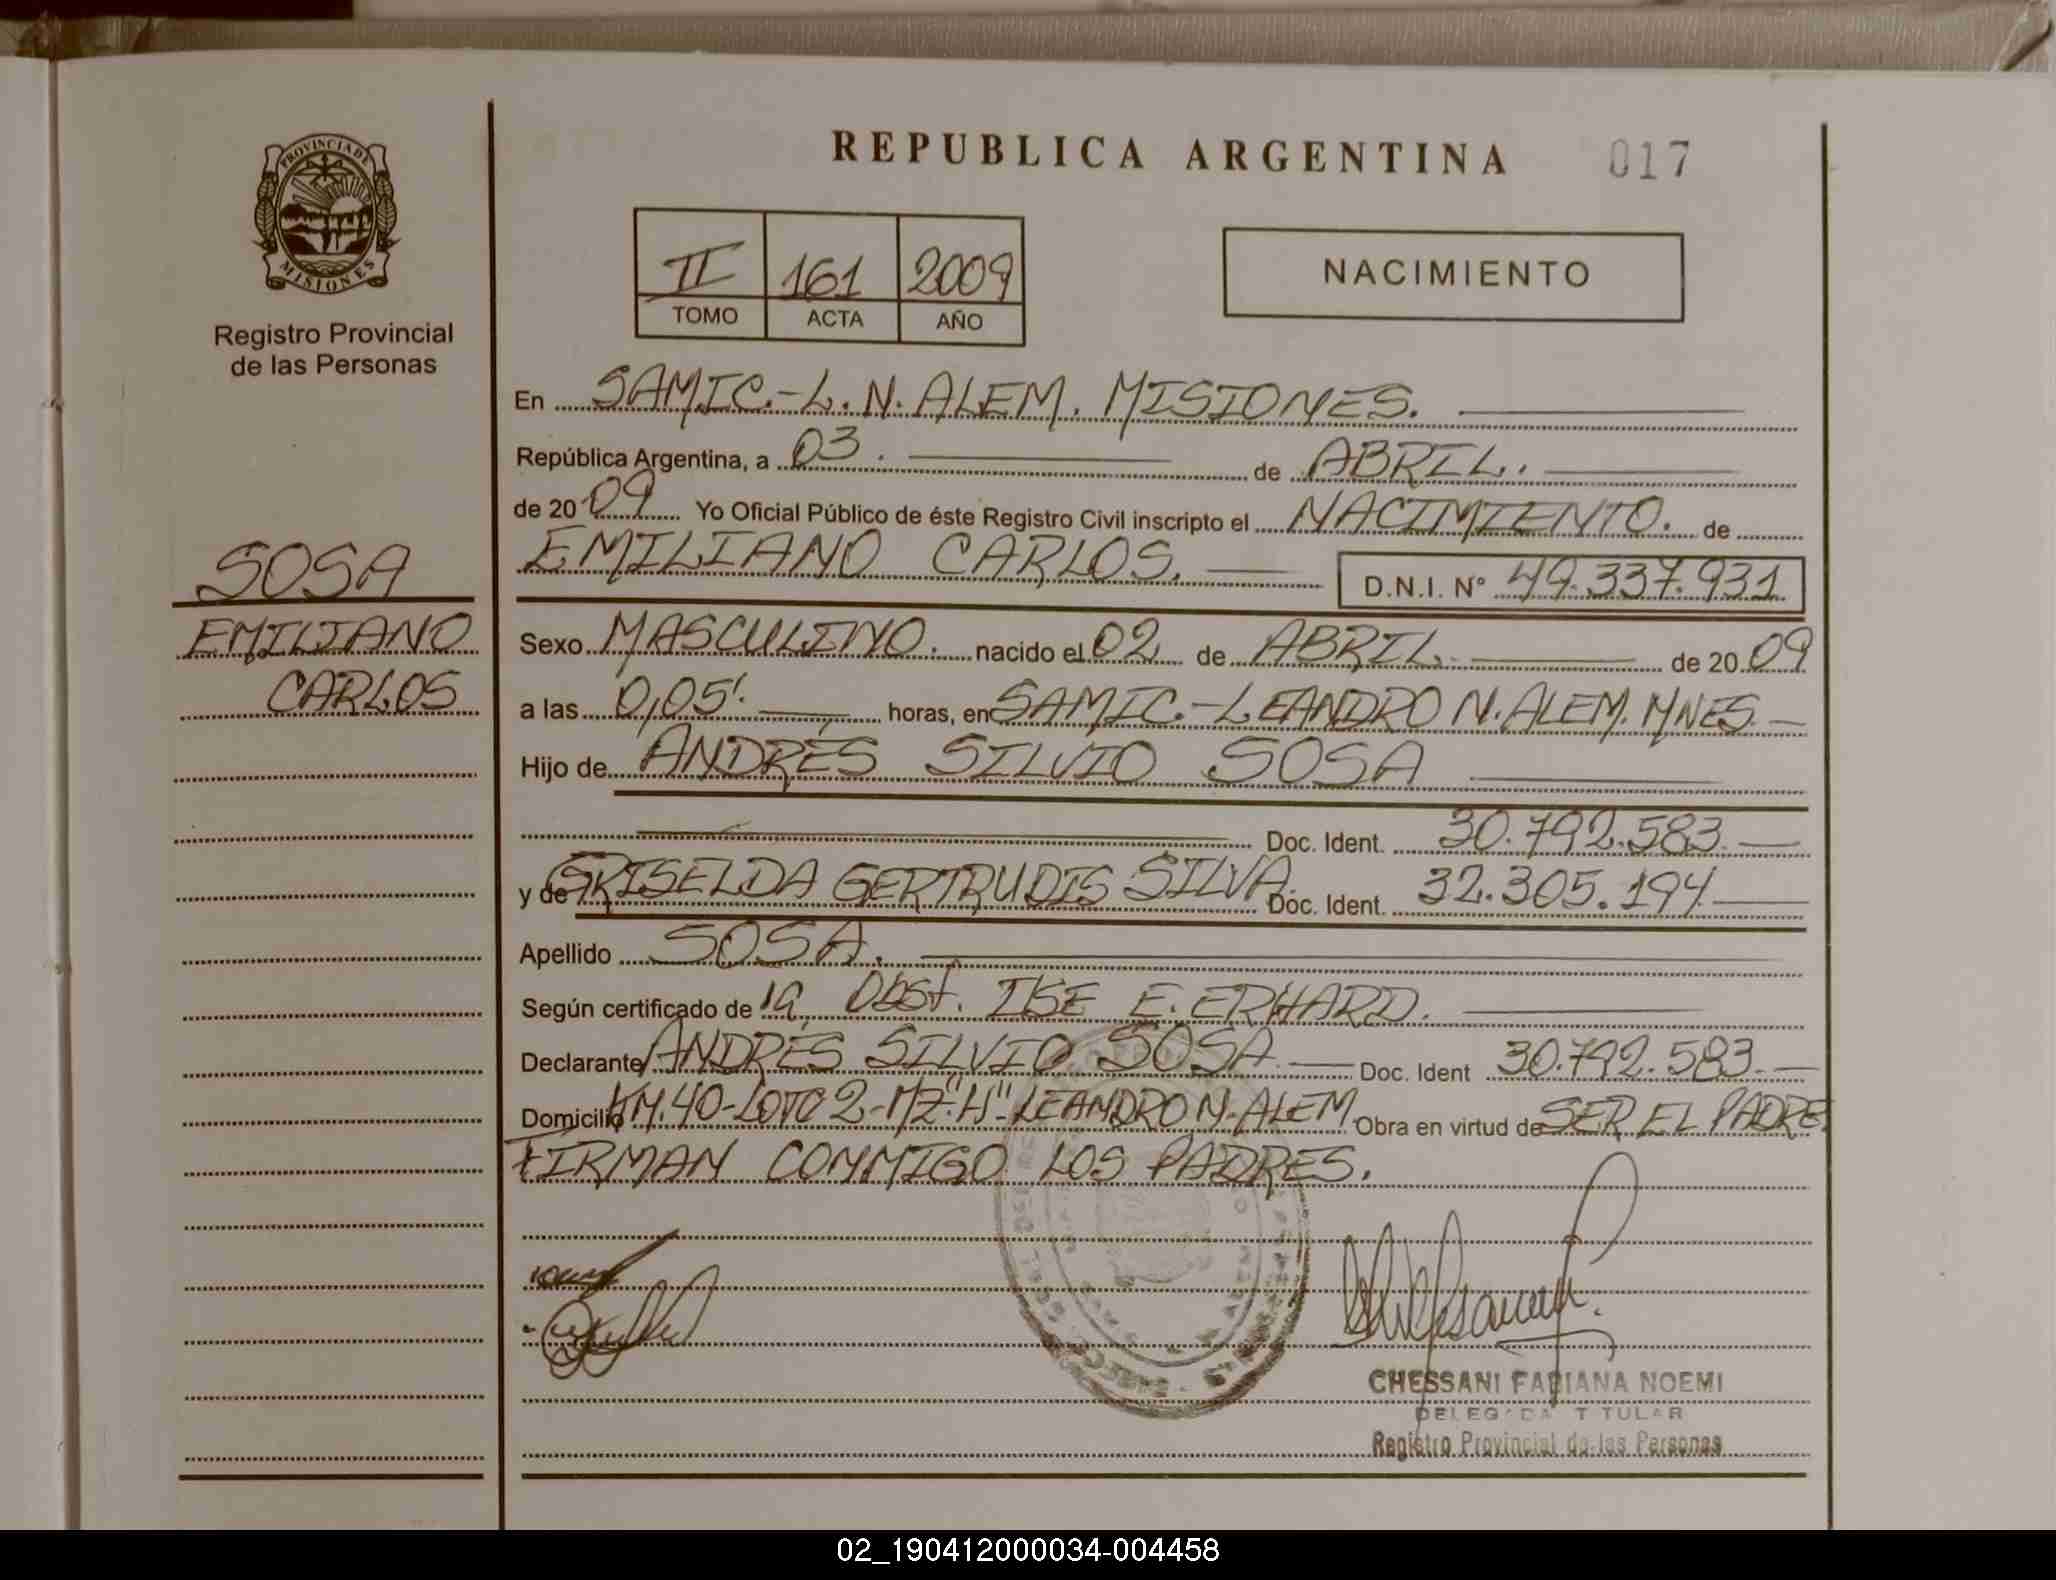 PROVINCIA DE
MISIONES
Registro Provincial
de las Personas
SOSA
EMILIANO
CARLOS
REPUBLICA ARGENTINA 017
II 161 2009
TOMO ACTA AÑO
NACIMIENTO
En SAMIC.-L.N.ALEM. MISIONES.
República Argentina, a 03. de ABRIL.
de 2009 Yo Oficial Público de éste Registro Civil inscripto el NACIMIENTO. de
EMILIANO CARLOS. D.N.I. Nº 49.337.931
Sexo MASCULINO. nacido el 02 de ABRIL. de 2009
a las 0,05'. horas, en SAMIC.-LEANDRO N.ALEM.MNES.
Hijo de ANDRÉS SILVIO SOSA
Doc. Ident. 30.792.583.
y de GRISELDA GERTRUDIS SILVA. Doc. Ident. 32.305.194
Apellido SOSA.
Según certificado de la Obst. ILSE E. ERHARD.
Declarante ANDRÉS SILVIO SOSA Doc. Ident 30.792.583.
Domicilio KM.40-LOTE 2-MZ"H"-LEANDRO N.ALEM. Obra en virtud de SER EL PADRE.
FIRMAN CONMIGO LOS PADRES.
CHESSANI FABIANA NOEMI
DELEGADA TITULAR
Registro Provincial de las Personas
02_190412000034-004458